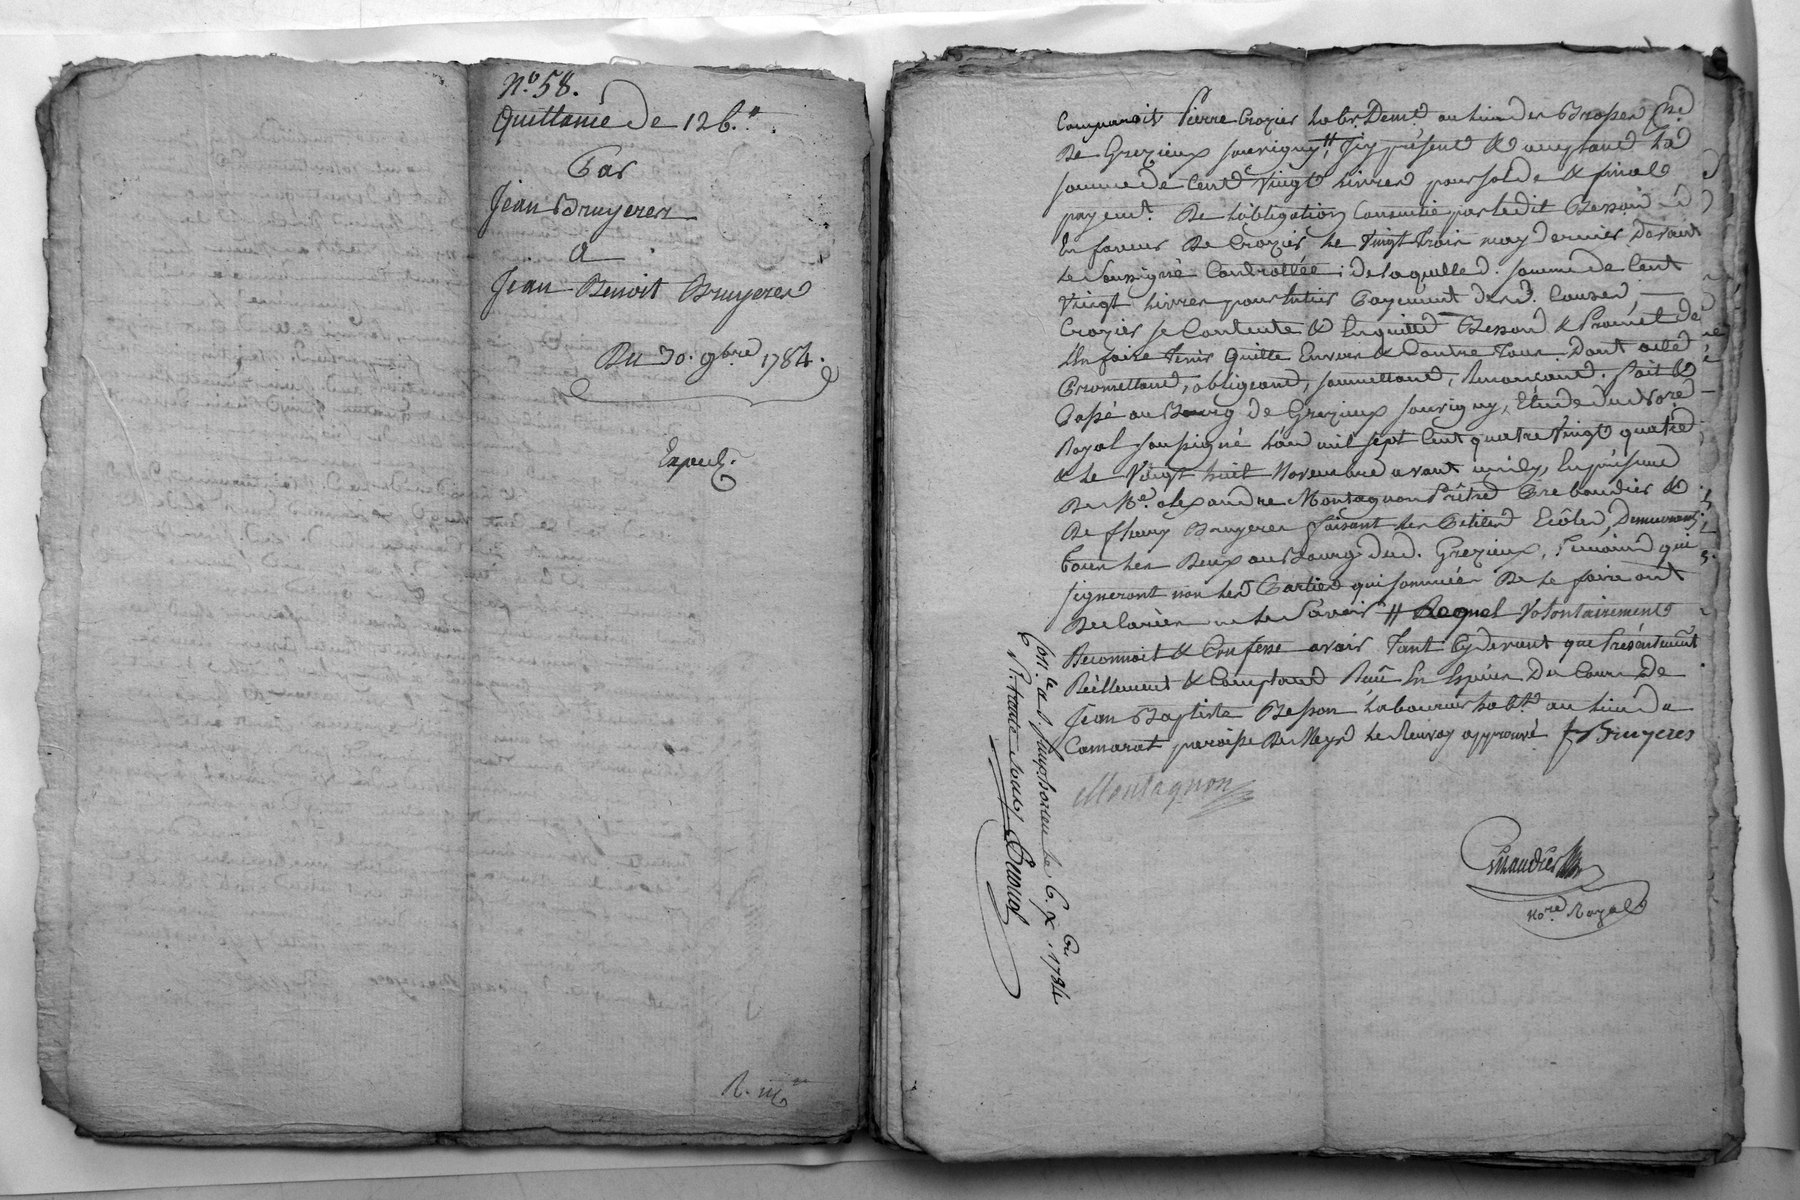 N.º 58.
Quittance de 126.#
Par
Jean Bruyeres
a
Jean Benoit Bruyeres
Du 30. 9bre 1784.
Exped.
Comparoit Pierre Crozier labr. Demt. au lieu des Brosses
De Grezieux souvigny,# Icy présent & acceptant La
somme de Cent Vingt Livres pour solde & final
payemt. De L'obligation Consentie par ledit Besson
En faveur De Crozier le Vingt Trois may dernier Devant
Le Soussigné Controllée; de laquelle d. somme de Cent
Vingt Livres pour Entier Payement des d. Causes,
Crozier se Contente & En quitte Besson & Promet de
L'En faire Tenir Quitte Envers & Contre Tous. Dont acte
Promettant, obligeant, soumettant, Renonçant. fait &
Passé au Bourg de Grezieux souvigny, Etude du Nore
Royal soussigné L'an mil sept Cent quatre Vingt quatre
& le Vingt huit Novembre avant midy, En présence
De Me. alexandre Montagnon Prêtre Prebandier &
De fleury Bruyeres faisant les Petites Ecôles, Demeurants
Tous les Deux au Bourg dud. Grezieux, Temoins qui
signeront non les Parties qui sommées De le faire ont
Declarées ne le Savoir # Lequel Volontairement
Reconnoit & Confesse avoir Tant Cydevant que Présentement
Réellement & Comptant Reçû En Espèces Du Cours De
Jean Baptiste Besson Laboureur habt. au lieu de
Camarat paroisse De Meys le Renvoy approuvé f Bruyeres
Montagnon
nore. Royal
Con.lé a St. Simphorien le 6. Xbre. 1784